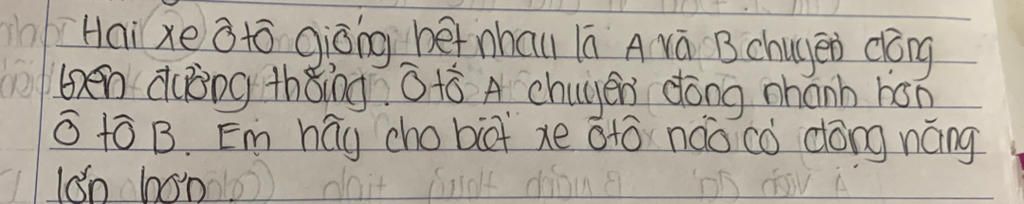 Hai xe ôtô giống hệt nhau là A và B chuyển động
trên đường thẳng. Ôtô A chuyển động nhanh hơn
ô tô B. Em hãy cho biết xe ôtô nào có động năng
lớn hơn